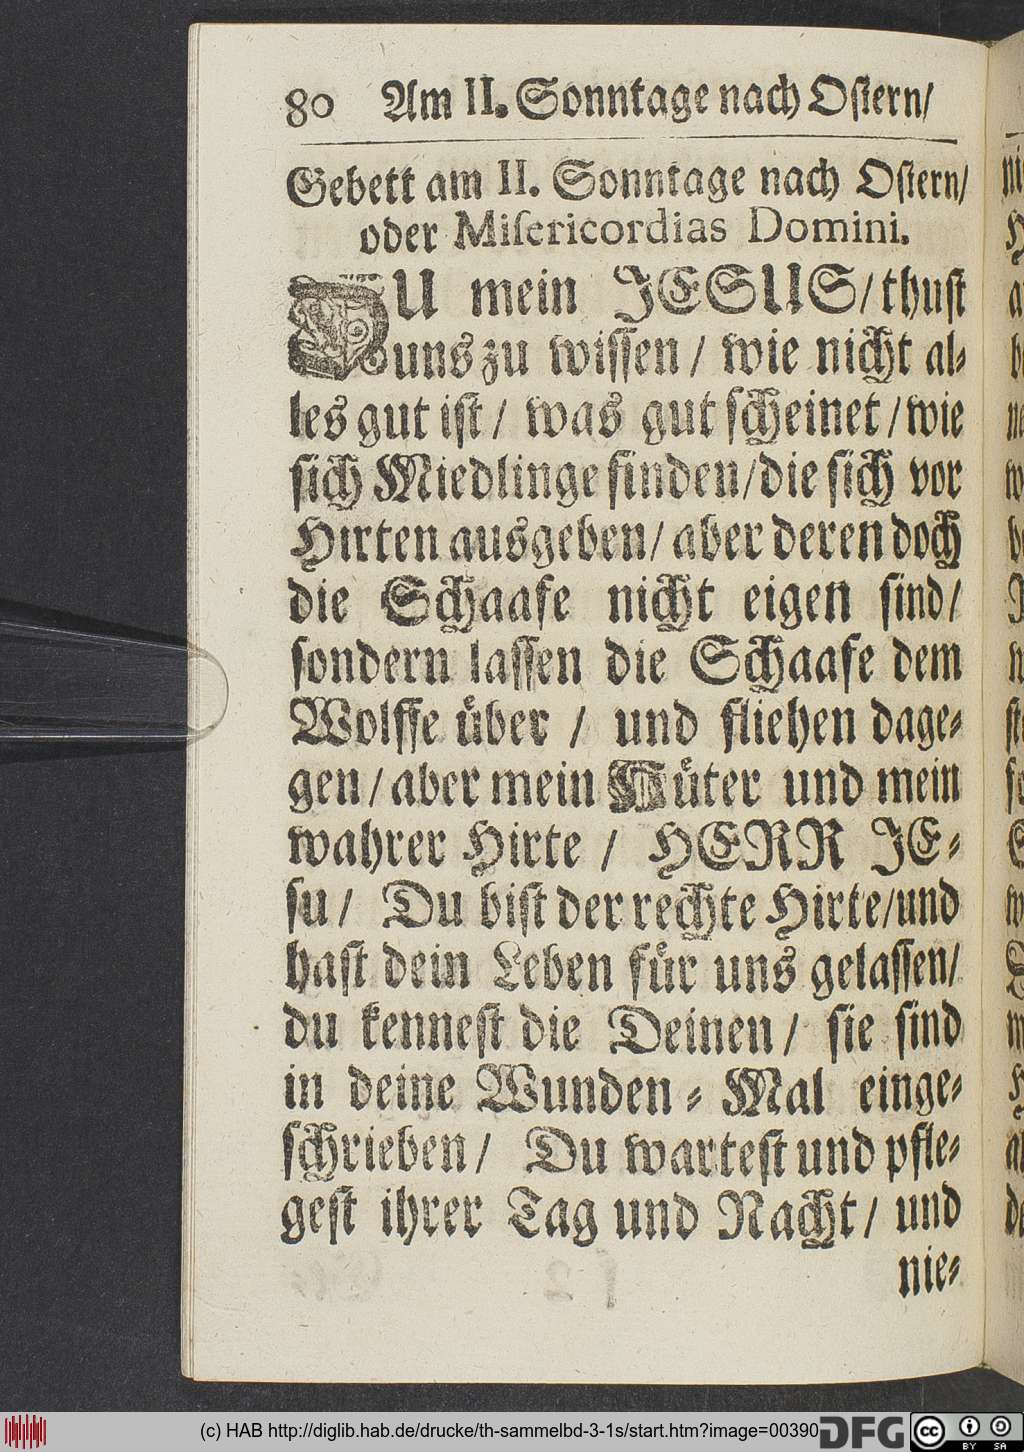 80 Am II. Sonntage nach Oſtern/
Gebett am II. Sonntage nach Oſtern/
oder Miſericordias Domini.
DU mein JESUS/thuſt
uns zu wiſſen / wie nicht al⸗
les gut iſt / was gut ſcheinet /wie
ſich Miedlinge finden/die ſich vor
Hirten ausgeben/ aber deren doch
die Schaafe nicht eigen ſind/
ſondern laſſen die Schaafe dem
Wolffe über / und fliehen dage⸗
gen / aber mein Hüter und mein
wahrer Hirte / HERR JE⸗
ſu / Du biſt der rechte Hirte/und
haſt dein Leben für uns gelaſſen/
du kenneſt die Deinen / ſie ſind
in deine Wunden ⸗ Mal einge⸗
ſchrieben / Du warteſt und pfle⸗
geſt ihrer Tag und Nacht / und
nie⸗
(c) HAB http://diglib.hab.de/drucke/th-sammelbd-3-1s/start.htm?image=00390
DFG
cc
BY SA